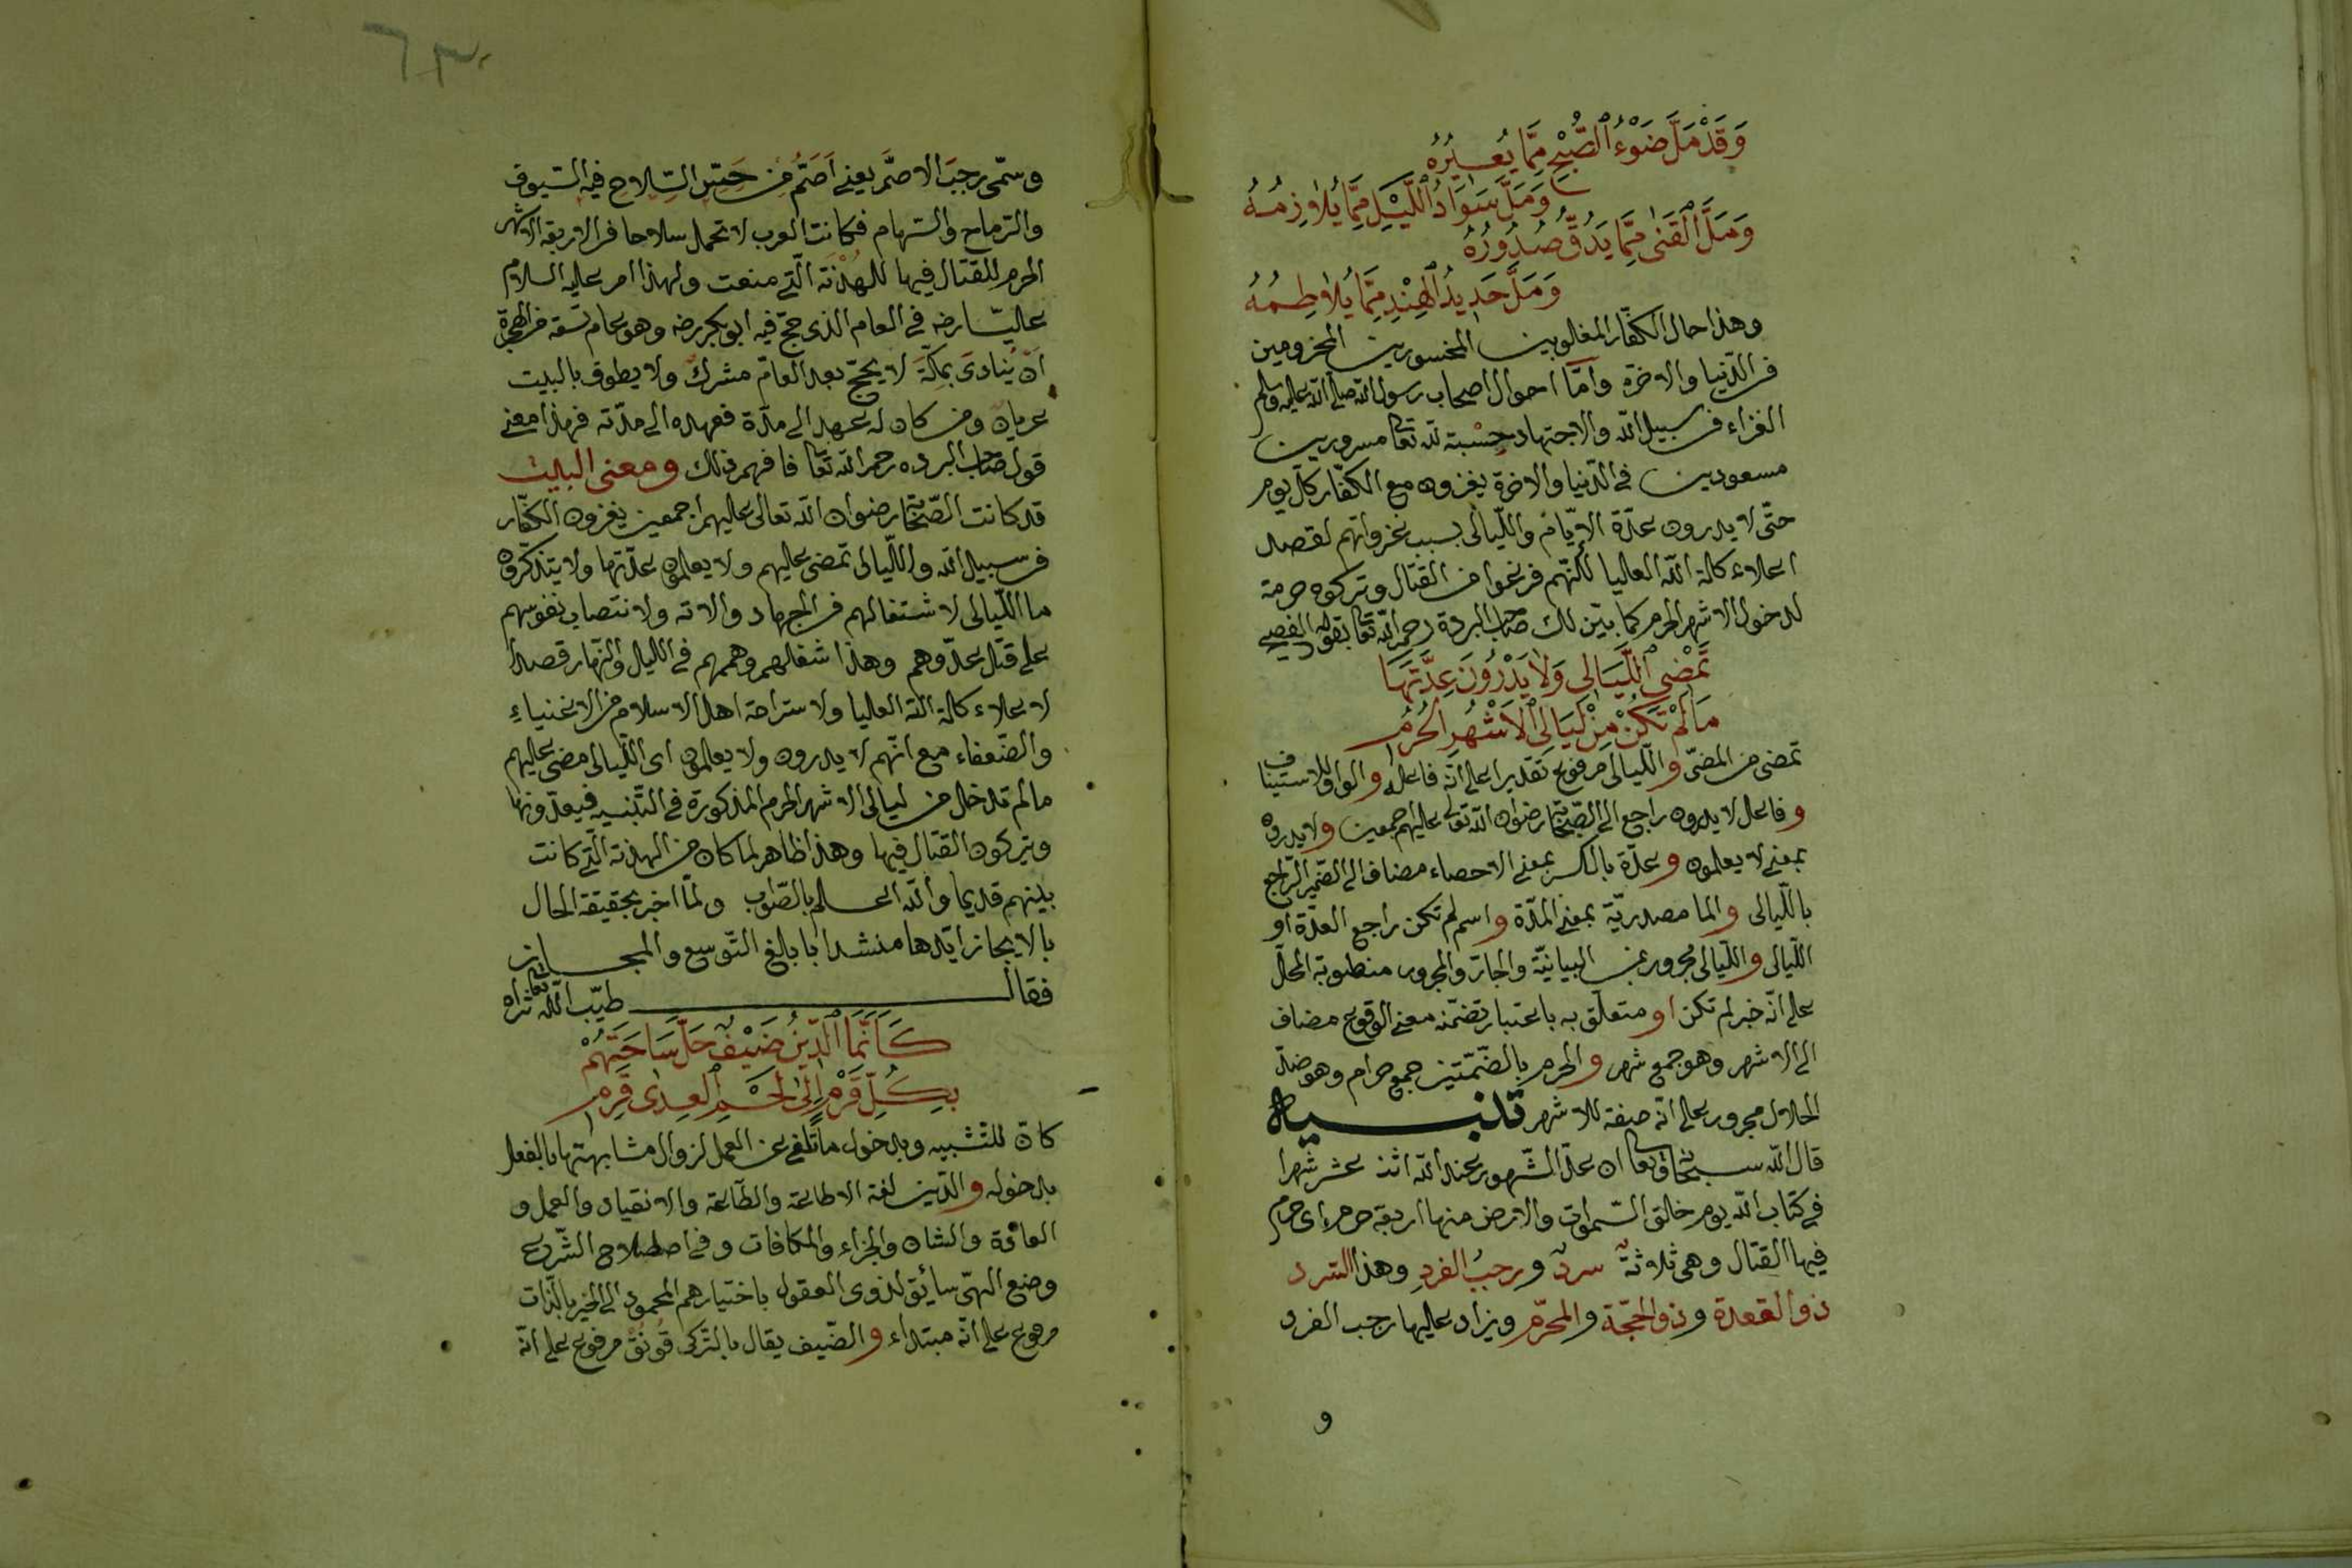 وَقَدْ مَلَّ ضَوْءُ ٱلصُّبْحِ مِمَّا يُغِيرُهُ
وَمَلَّ سَوَادُ ٱللَّيْلِ مِمَّا يُلاٰزِمُهُ
وَمَلَّ ٱلْقَنٰى مِمَّا يَدُقُّ صُدُورُهُ
وَمَلَّ حَدِيدُ ٱلْهِنْدِ مِمَّا يُلاٰطِمُهُ
وهذا حال الكفّار المغلوبين المخسورين المخزومين
فى الدّنيا والاخرة وامّا احوال اصحاب رسول الله صلى الله عليه وسلم
الغزاء فى سبيل الله والاجتهاد حِسْبة لله تعا مسرورين
مسعودين فى الدّنيا والاخرة يغزون مع الكفّار كلّ يوم
حتّى لا يدرون عدّة الايّام واللّيالى بسبب غزواتهم لقصد
اعلاء كلمة الله العليا لكنّهم فرغوا من القتال وتركوه حرمة
لدخول الاشهر الحرم كما بيّن لك صاحب البردة رحمه الله تعا بقوله الفصيح
تَمْضِى ٱللَّيَالِى وَلاٰ يَدْرُونَ عِدَّتَهَا
مَالَمْ تَكُنْ مِنْ لَيَالِى ٱلاَشْهُرِ الحُرُمِ
تمضى من المضىّ والّليالى مرفوع تقديرا على انّه فاعله والواو للاستيناف
وفاعل لا يدرون راجع الى الصّحابة رضوان الله تعالى عليهم اجمعين ولا يدرون
بمعنى لا يعلمون وعدّة بالكسر بمعنى الاحصاء مضاف الى الضّمير الرّاجع
باللّيالى والما مصدريّة بمعنى المدّة واسم لم تكن راجع العدّة او
اللّيالى واللّيالى مجرور بمن البيانيّة والجارّ والمجرور منصوبة المحلّ
على انّه خبر لم تكن او متعلّق به باعتبار تضمّنه معنى الوقوع مضاف
الى الاشهر وهو جمع شهر والحرم بالضّمّتين جمع حرام وهو ضدّ
الحلال مجرور على انّه صفة للاشهر تنبيه
قال الله سبحانه وتعا ان عدّة الشّهور عند الله اثنا عشر شهرا
فى كتاب الله يوم خلق السّموات والارض منها اربعة حرم اى حرم
فيها القتال وهى ثلاثةٌ سردٌ ورجبُ الفردِ وهذا السّرد
ذو القعدة وذو الحجّة والمحرّم ويزاد عليها رجب الفرد
و
٦٣
وسمّى رجبَ الاصمَّ يعنى اَصَمُّ من حَسِّ السِّلاح فيه السّيوف
والرّماح والسّهام فكانت العرب لا تحمل سلاحا فى الاربعة الاشهر
الحرم للقتال فيها للهُدْنَة الّتى منعت ولهذا امر عليه السلام
عليّا رضه فى العام الذى حجّ فيه ابو بكر رضه وهو عام تسعة من الهجرة
اَنْ يُنَادَى بمكّةَ لا يحجّ بعد العامّ مشركٌ ولا يطوف بالبيت
عريانٌ ومن كان له عهد الى مدّة فعهده الى مدّته فهذا معنى
قول صاحب البرده رحمه الله تعا فافهم ذلك ومعنى البيت
قد كانت الصّحابة رضوان الله تعالى عليهم اجمعين يغزون الكفّار
فى سبيل الله واللّيالى تمضى عليهم ولا يعلمون عدّتها ولا يتذكّرون
ما اللّيالى لاشتغالهم فى الجهاد والاته ولانتصاب نفوسهم
على قتل عدّوهم وهذا شغلهم وهممهم فى الليل والنّهار قصدا
لاعلاء كلمة الله العليا ولاستراحة اهل الاسلام من الاغنياءِ
والضّعفاء مع انّهم لا يدرون ولا يعلمون اى اللّيالى مضى عليهم
مالم تدخل من ليالى الاشهر الحرم المذكورة فى التّنبيه فيعدّونها
ويتركون القتال فيها وهذا ظاهر لما كان من الهدنة الّتى كانت
بينهم قديما والله اعلم بالصّواب ولمّا اخبر بحقيقة الحال
بالايجاز ايّدها منشدا بابالغ التّوسع والمجاز
فقال طيّب الله تعا ثراه
كَاَنَّمَا ٱلدِّينُ ضَيْفٌ حَلَّ سَاحَتَهُمْ
بِكُلِّ قَرْمٍ اِلٰى لَحْمِ ٱلْعِدٰى قَرِمِ
كانّ للتّشبيه وبدخول ما تلغى عن العمل لزوال مشابهتها بالفعل
بدخوله والدّين لغة الاطاعة والطّاعة والانقياد والعمل و
العادة والشان والجزاء والمكافات وفى اصطلاح الشّرع
وضع الهىّ سائق لذوى العقول باختيارهم المحمود الى الخير بالذّات
مرفوع على انّه مبتداء والضّيف يقال بالتّركى قُونُق مرفوع على انّه